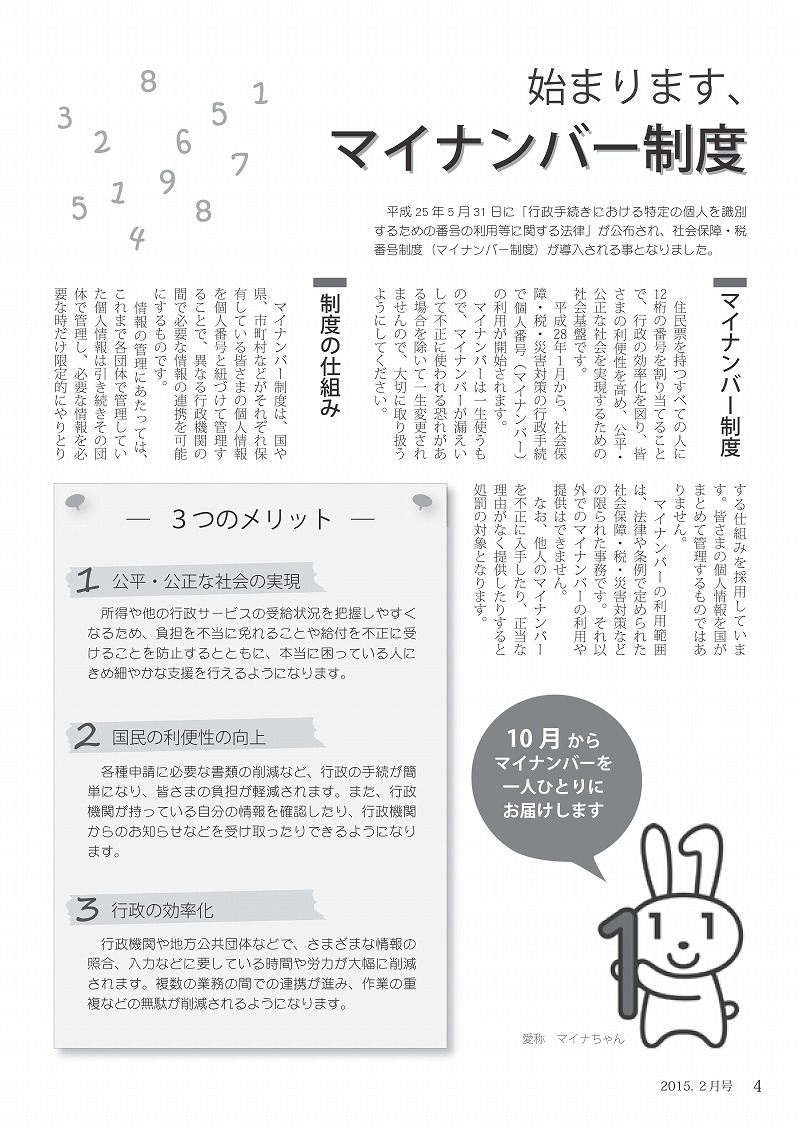 8
1
3
5
2
6
7
9
1
5
8
4
始まります、
マイナンバー制度
平成 25 年 5 月 31 日に「行政手続きにおける特定の個人を識別
するための番号の利用等に関する法律」が公布され、社会保障・税
番号制度（マイナンバー制度）が導入される事となりました。
マイナンバー制度
住民票を持つすべての人に
12桁の番号を割り当てること
で、行政の効率化を図り、皆
さまの利便性を高め、公平・
公正な社会を実現するための
社会基盤です。
平成28年1月から、社会保
障・税・災害対策の行政手続
で個人番号（マイナンバー）
の利用が開始されます。
マイナンバーは一生使うも
ので、マイナンバーが漏えい
して不正に使われる恐れがあ
る場合を除いて一生変更され
ませんので、大切に取り扱う
ようにしてください。
制度の仕組み
マイナンバー制度は、国や
県、市町村などがそれぞれ保
有している皆さまの個人情報
を個人番号と紐づけて管理す
ることで、異なる行政機関の
間で必要な情報の連携を可能
にするものです。
情報の管理にあたっては、
これまで各団体で管理してい
た個人情報は引き続きその団
体で管理し、必要な情報を必
要な時だけ限定的にやりとり
する仕組みを採用していま
す。皆さまの個人情報を国が
まとめて管理するものではあ
りません。
マイナンバーの利用範囲
は、法律や条例で定められた
社会保障・税・災害対策など
の限られた事務です。それ以
外でのマイナンバーの利用や
提供はできません。
なお、他人のマイナンバー
を不正に入手したり、正当な
理由がなく提供したりすると
処罰の対象となります。
― 3つのメリット ―
1 公平・公正な社会の実現
所得や他の行政サービスの受給状況を把握しやすく
なるため、負担を不当に免れることや給付を不正に受
けることを防止するとともに、本当に困っている人に
きめ細やかな支援を行えるようになります。
2 国民の利便性の向上
各種申請に必要な書類の削減など、行政の手続が簡
単になり、皆さまの負担が軽減されます。また、行政
機関が持っている自分の情報を確認したり、行政機関
からのお知らせなどを受け取ったりできるようになり
ます。
3 行政の効率化
行政機関や地方公共団体などで、さまざまな情報の
照合、入力などに要している時間や労力が大幅に削減
されます。複数の業務の間での連携が進み、作業の重
複などの無駄が削減されるようになります。
10 月 から
マイナンバーを
一人ひとりに
お届けします
1
愛称　マイナちゃん
2015. 2月号 4